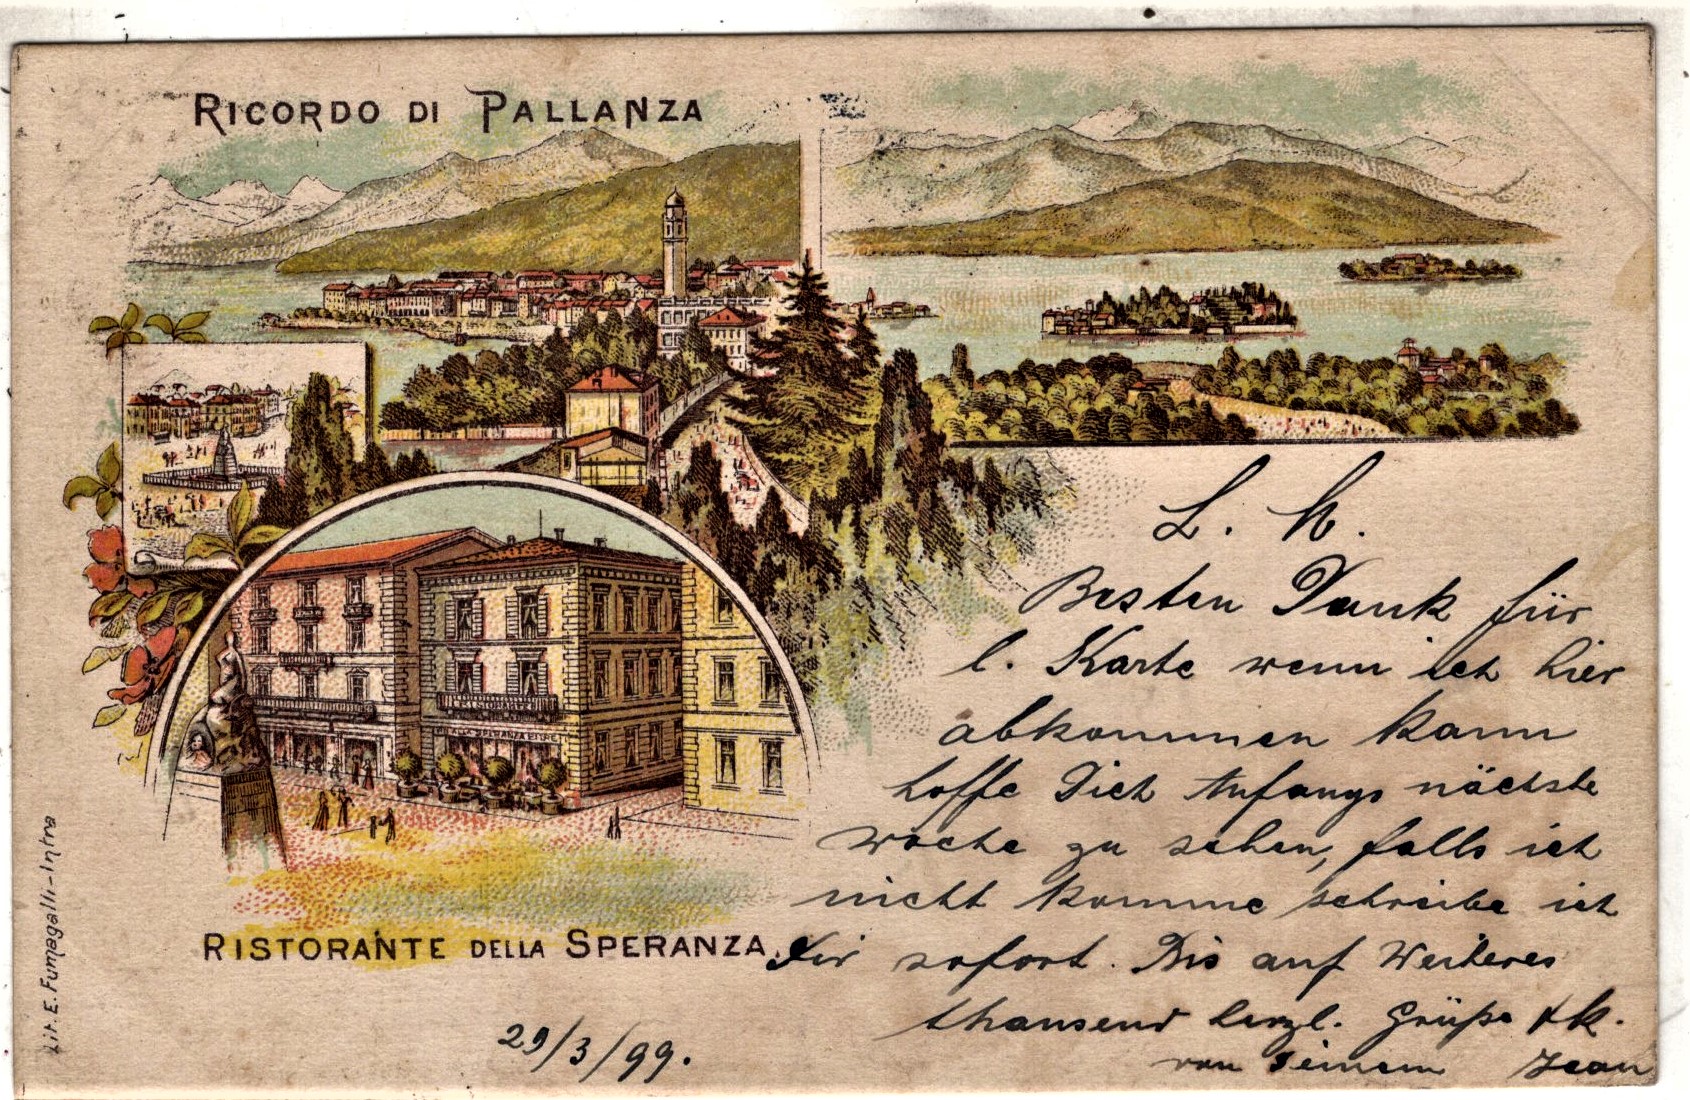 RICORDO DI PALLANZA
RISTORANTE
ALLA SPERANZA
RISTORANTE DELLA SPERANZA.
Lit. E. Fumagalli-Intra
29/3/99.
L. H.
Besten Dank für
l. Karte wenn ich hier
abkommen kann
hoffe Dich Anfangs nächste
woche zu sehen, falls ich
nicht komme schreibe ich
Dir sofort. Bis auf Weiteres
thausend herzl. Grüße & k.
von Deinem Jean